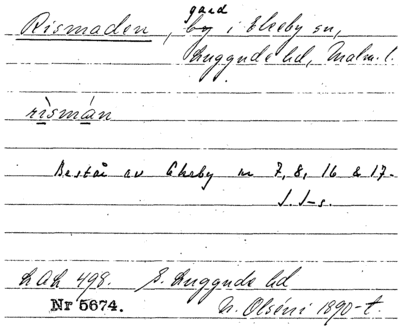 gård
Rismaden, by i Ekeby sn,
Luggude hd, Malm. l.
rìsmán
Består av Ekeby nr 7, 8, 16 & 17.
J. J-s.
LAL 498. S. Luggude hd
Nr 5674. N. Olséni 1890-t.